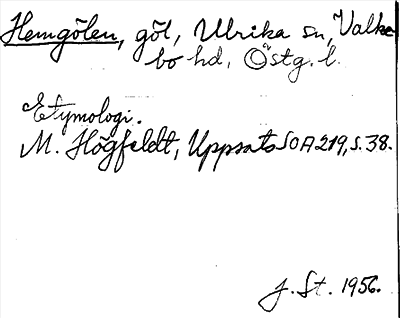 Hemgölen, göl, Ulrika sn, Valke-
bo hd, Östg. l.
Etymologi.
M. Högfeldt, Uppsats SOA 219, s. 38.
J. St. 1956.